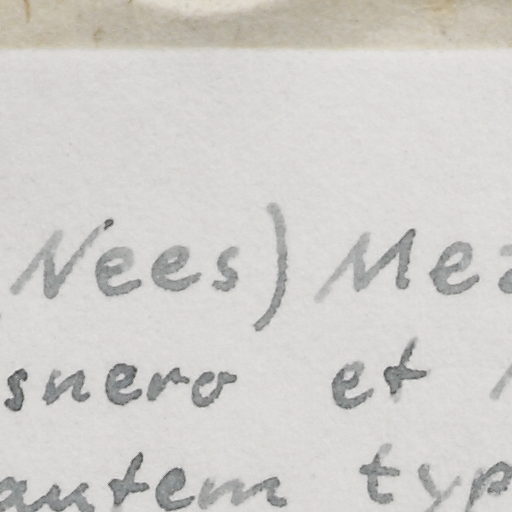 Nees) Mez
snero et
autem typ